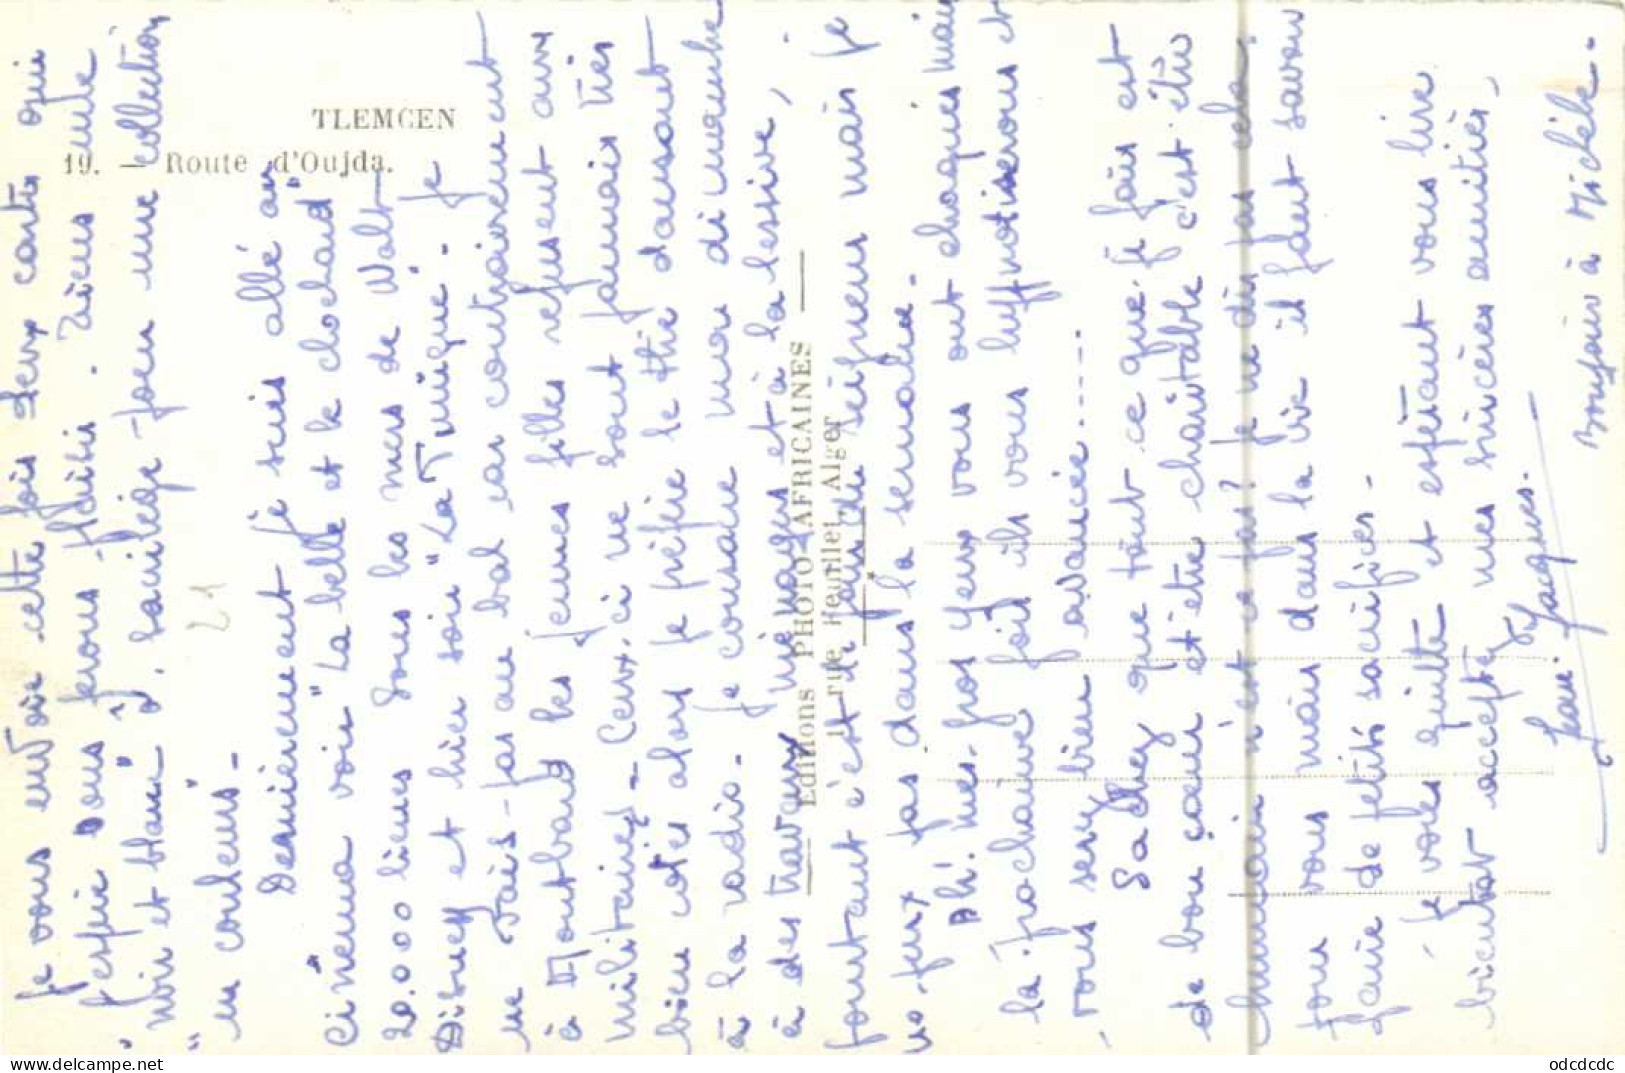 TLEMCEN
19. — Route d'Oujda.
Editions PHOTO-AFRICAINES
11 rue Feuillet, Alger
21
Je vous envoie cette fois deux cartes qui
j'espère vous ferons plaisir. Ainsi une
"noir et blanc", sacrilège pour une collection
"en couleurs"-
Dernièrement je suis allé au
Cinéma voir "La belle et le clochard"
20.000 lieues sous les mers de Walt
Disney et hier soir "La Tunique". Je
ne vais pas au bal car contrairement
à Montbard les jeunes filles refusent aux
militaires- Ceux-ci ne sont jamais très
bien cotés alors je préfère le thé dansant
à la radio. Je consacre mon dimanche
à des travaux ménagers et à la lessive,
pourtant c'est le jour du seigneur mais je
ne peux pas dans la semaine.
Ah! mes gros yeux vous ont choquées mais
la prochaine fois ils vous hypnotiserons et
vous serez bien avancée.....
Sachez que tout ce que je fais est
de bon cœur et être charitable c'est être
humain n'est ce pas? Je ne dis pas cela
pour vous mais dans la vie il faut savoir
faire de petits sacrifices-
Je vous quitte et espérant vous lire
bientôt acceptez mes sincères amitiés,
Jean-Jacques.
Bonjour à Michèle.
odcdcdc